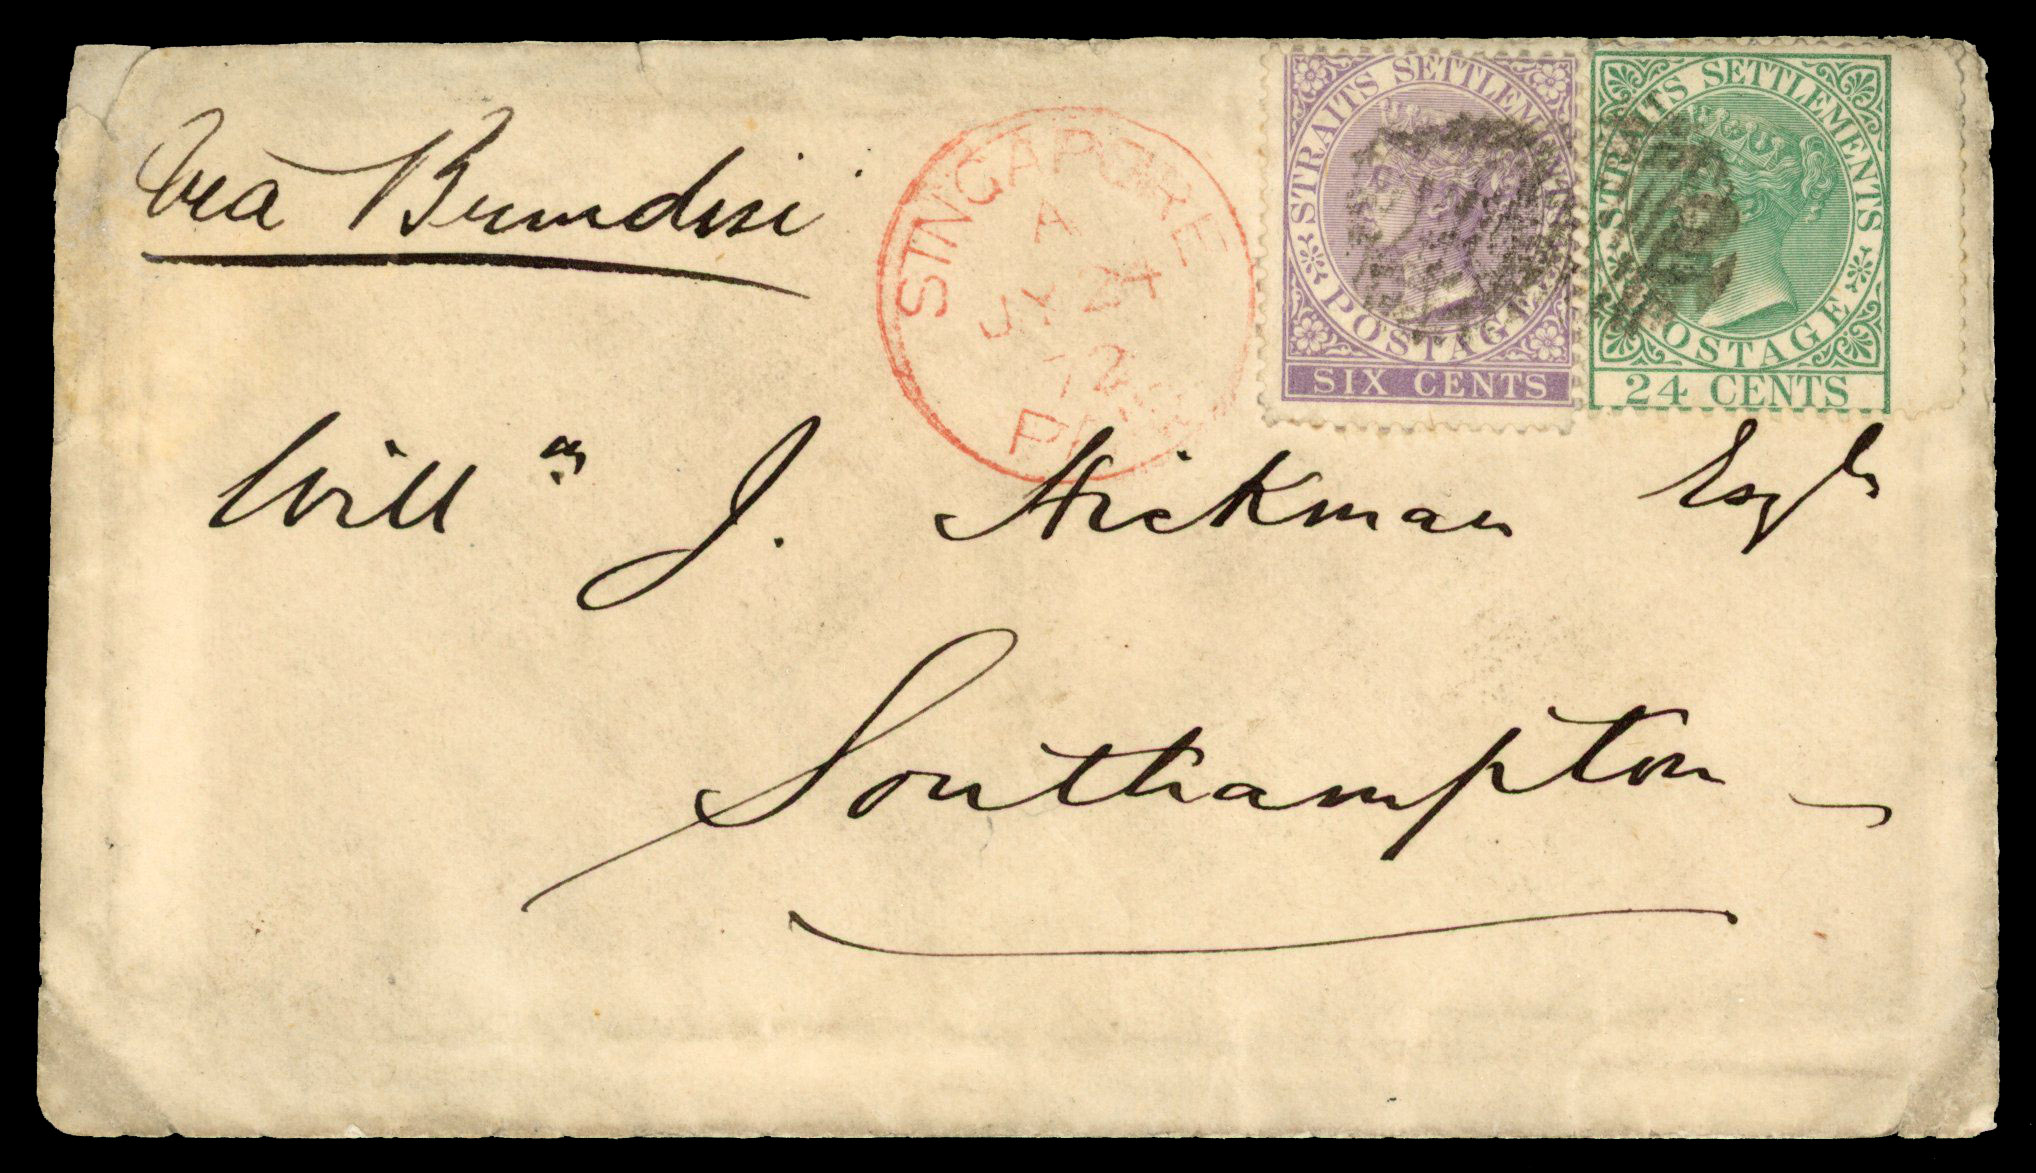 Via Brindisi
SINGAPORE
A
JY 24
72
STRAITS SETTLEMENTS
POSTAGE
SIX CENTS
STRAITS SETTLEMENTS
POSTAGE
24 CENTS
Will m J. Hickman Esqr
Southampton